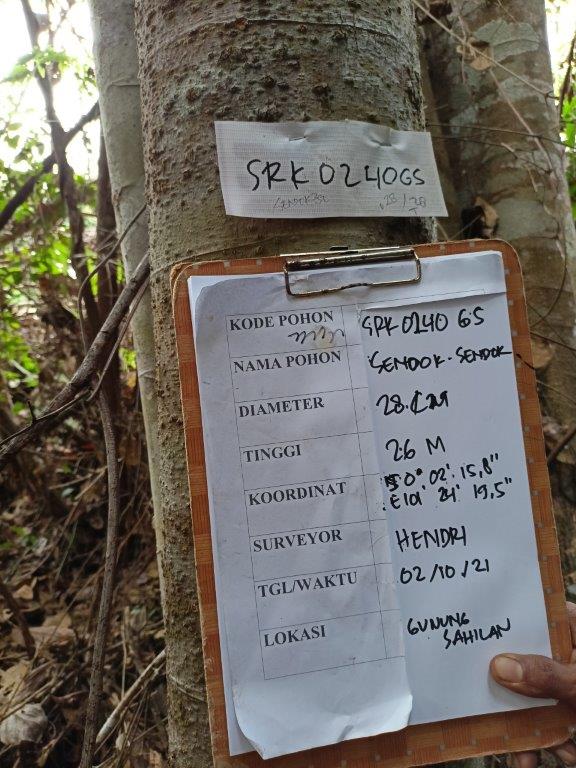 SRK 0240GS
28 / 28
KODE POHON SRK 0240 GS
NAMA POHON SENDOK-SENDOK
DIAMETER 28 CM
TINGGI 26 M
KOORDINAT S 0° 02' 15,8"
E 101° 21' 19,5"
SURVEYOR HENDRI
TGL/WAKTU 02/10/21
LOKASI GUNUNG
SAHILAN